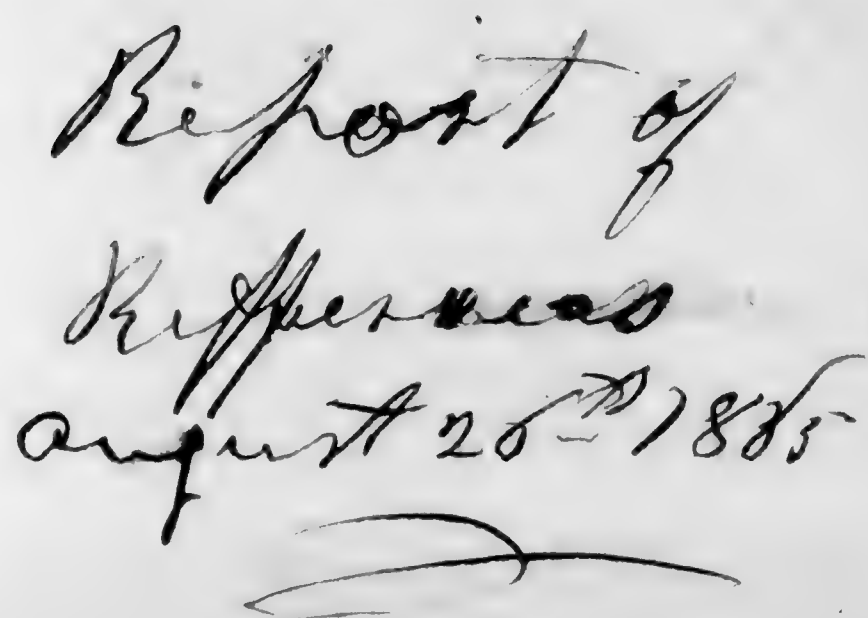 Report of
Refferees
August 26th 1885